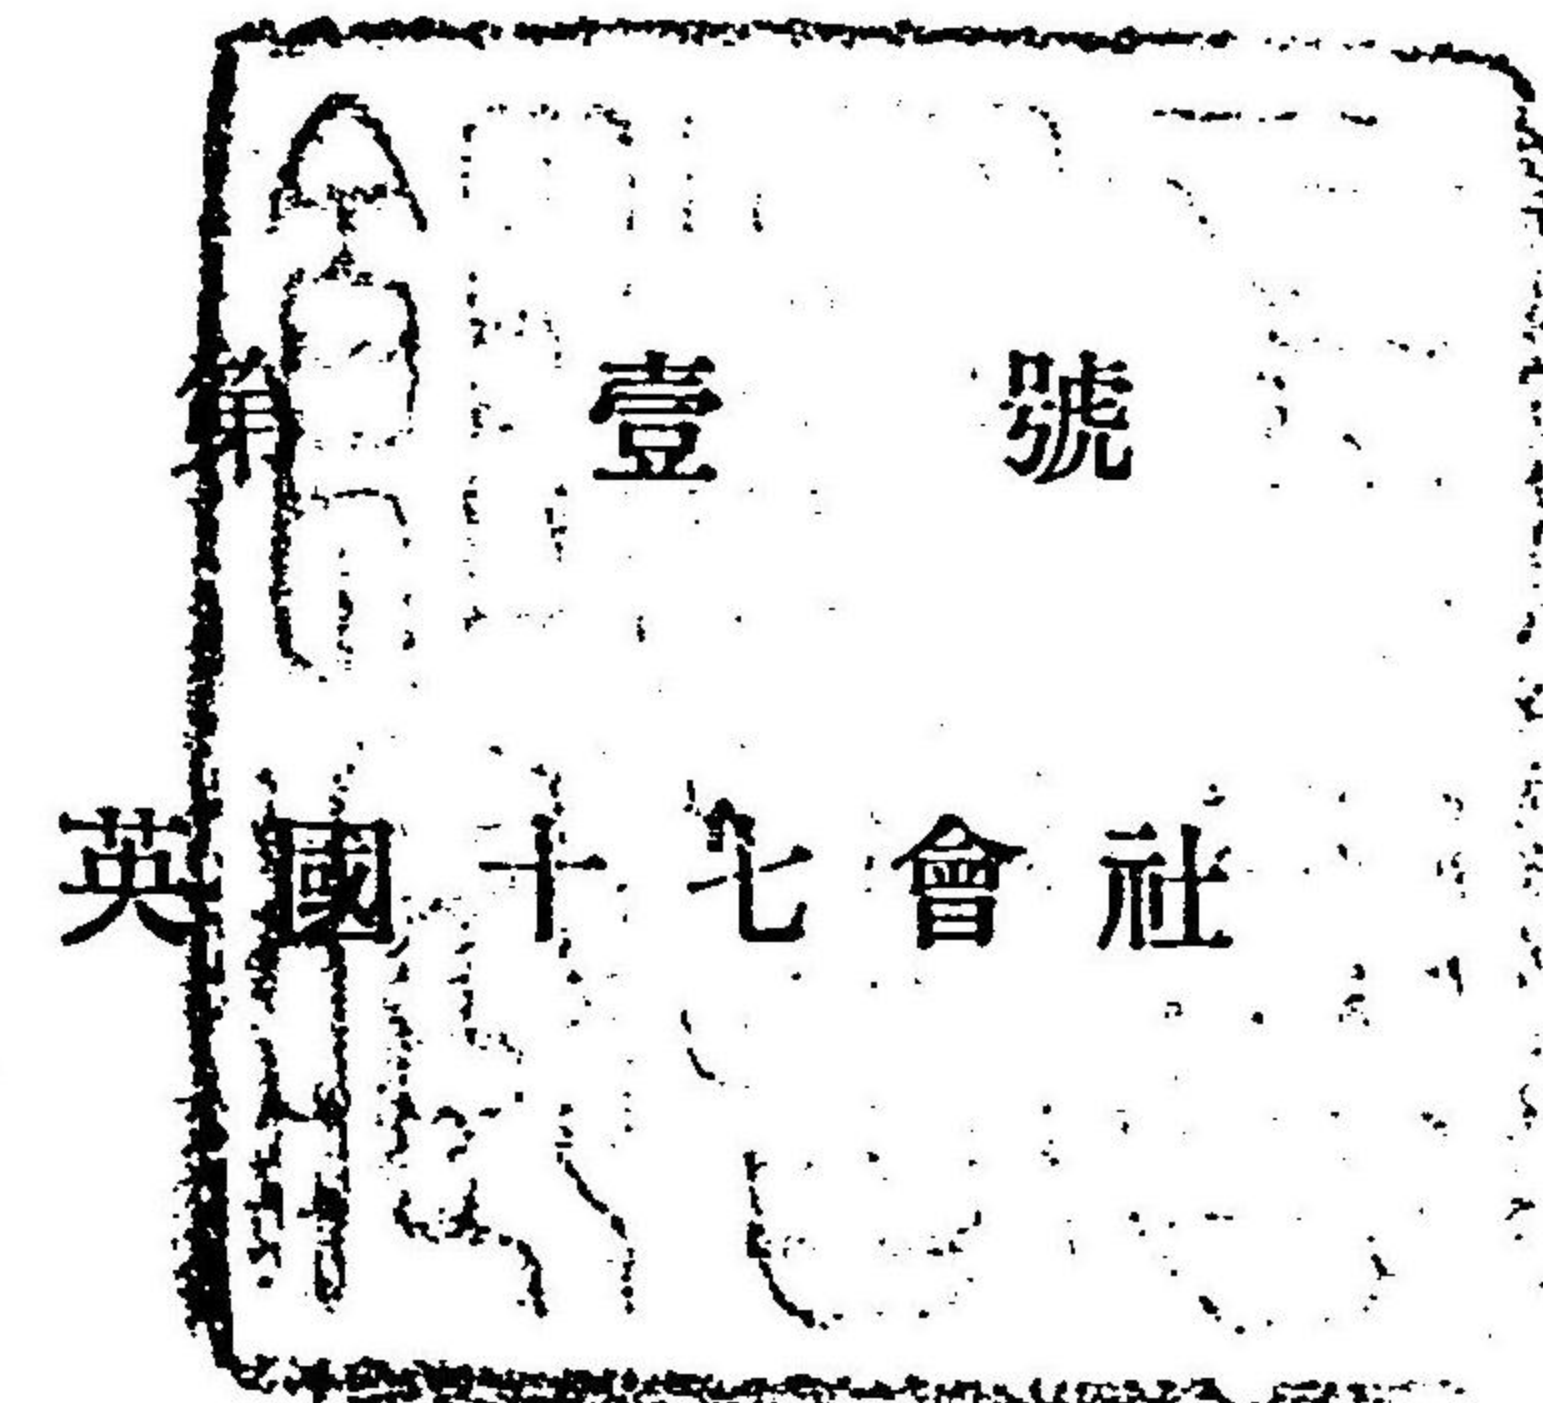 第壹號
英國十七會社